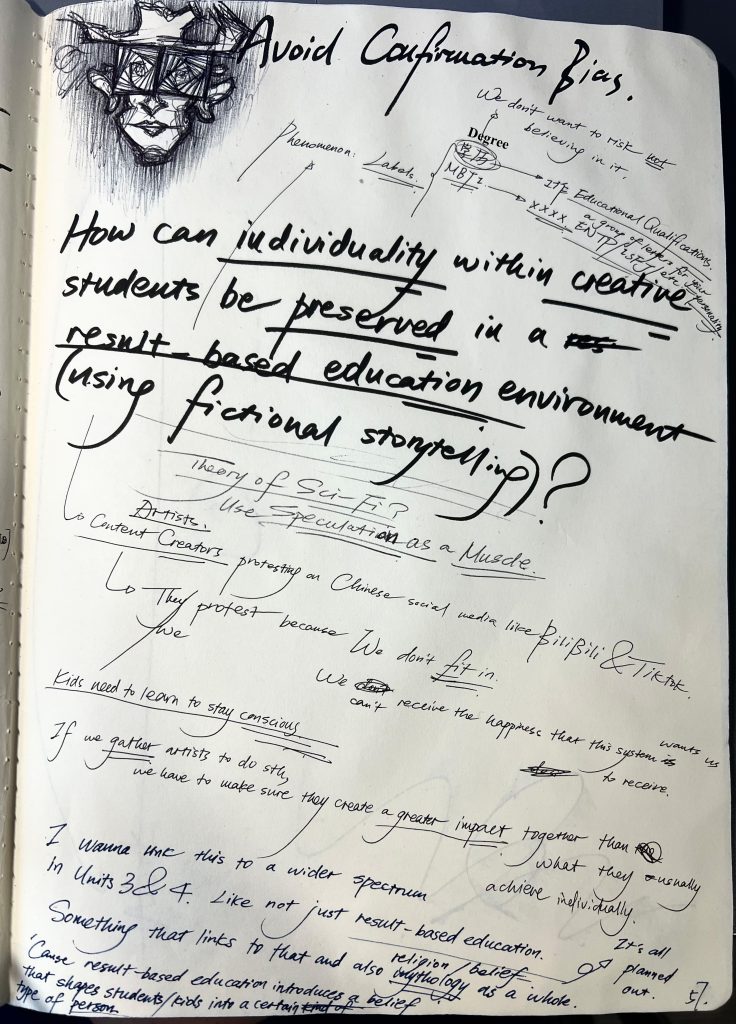 Avoid Confirmation Bias.
We don't want to risk not
believing in it.
Phenomenon: Labels.
Degree
学历
MBTI
It's Educational Qualifications.
XXXX a group of letters for your
ENTP, ISFJ, etc. personality
How can individuality within creative
students be preserved in a res
result-based education environment
(using fictional storytelling)?
Theory of Sci-Fi?
Use Speculation as a Muscle.
Artists.
Content Creators protesting on Chinese social media like BiliBili & Tiktok.
They protest because We don't fit in.
We
We don't can't receive the happiness that this system is wants us
to receive.
Kids need to learn to stay conscious
If we gather artists to do sth,
we have to make sure they create a greater impact together than
what they usually
achieve individually.
I wanna link this to a wider spectrum
in Units 3 & 4. Like not just result-based education.
Something that links to that and also religion/belief mythology as a whole.
It's all
planned
out.
'Cause result-based education introduces a belief
that shapes students/kids into a certain kind of
type of person.
5].